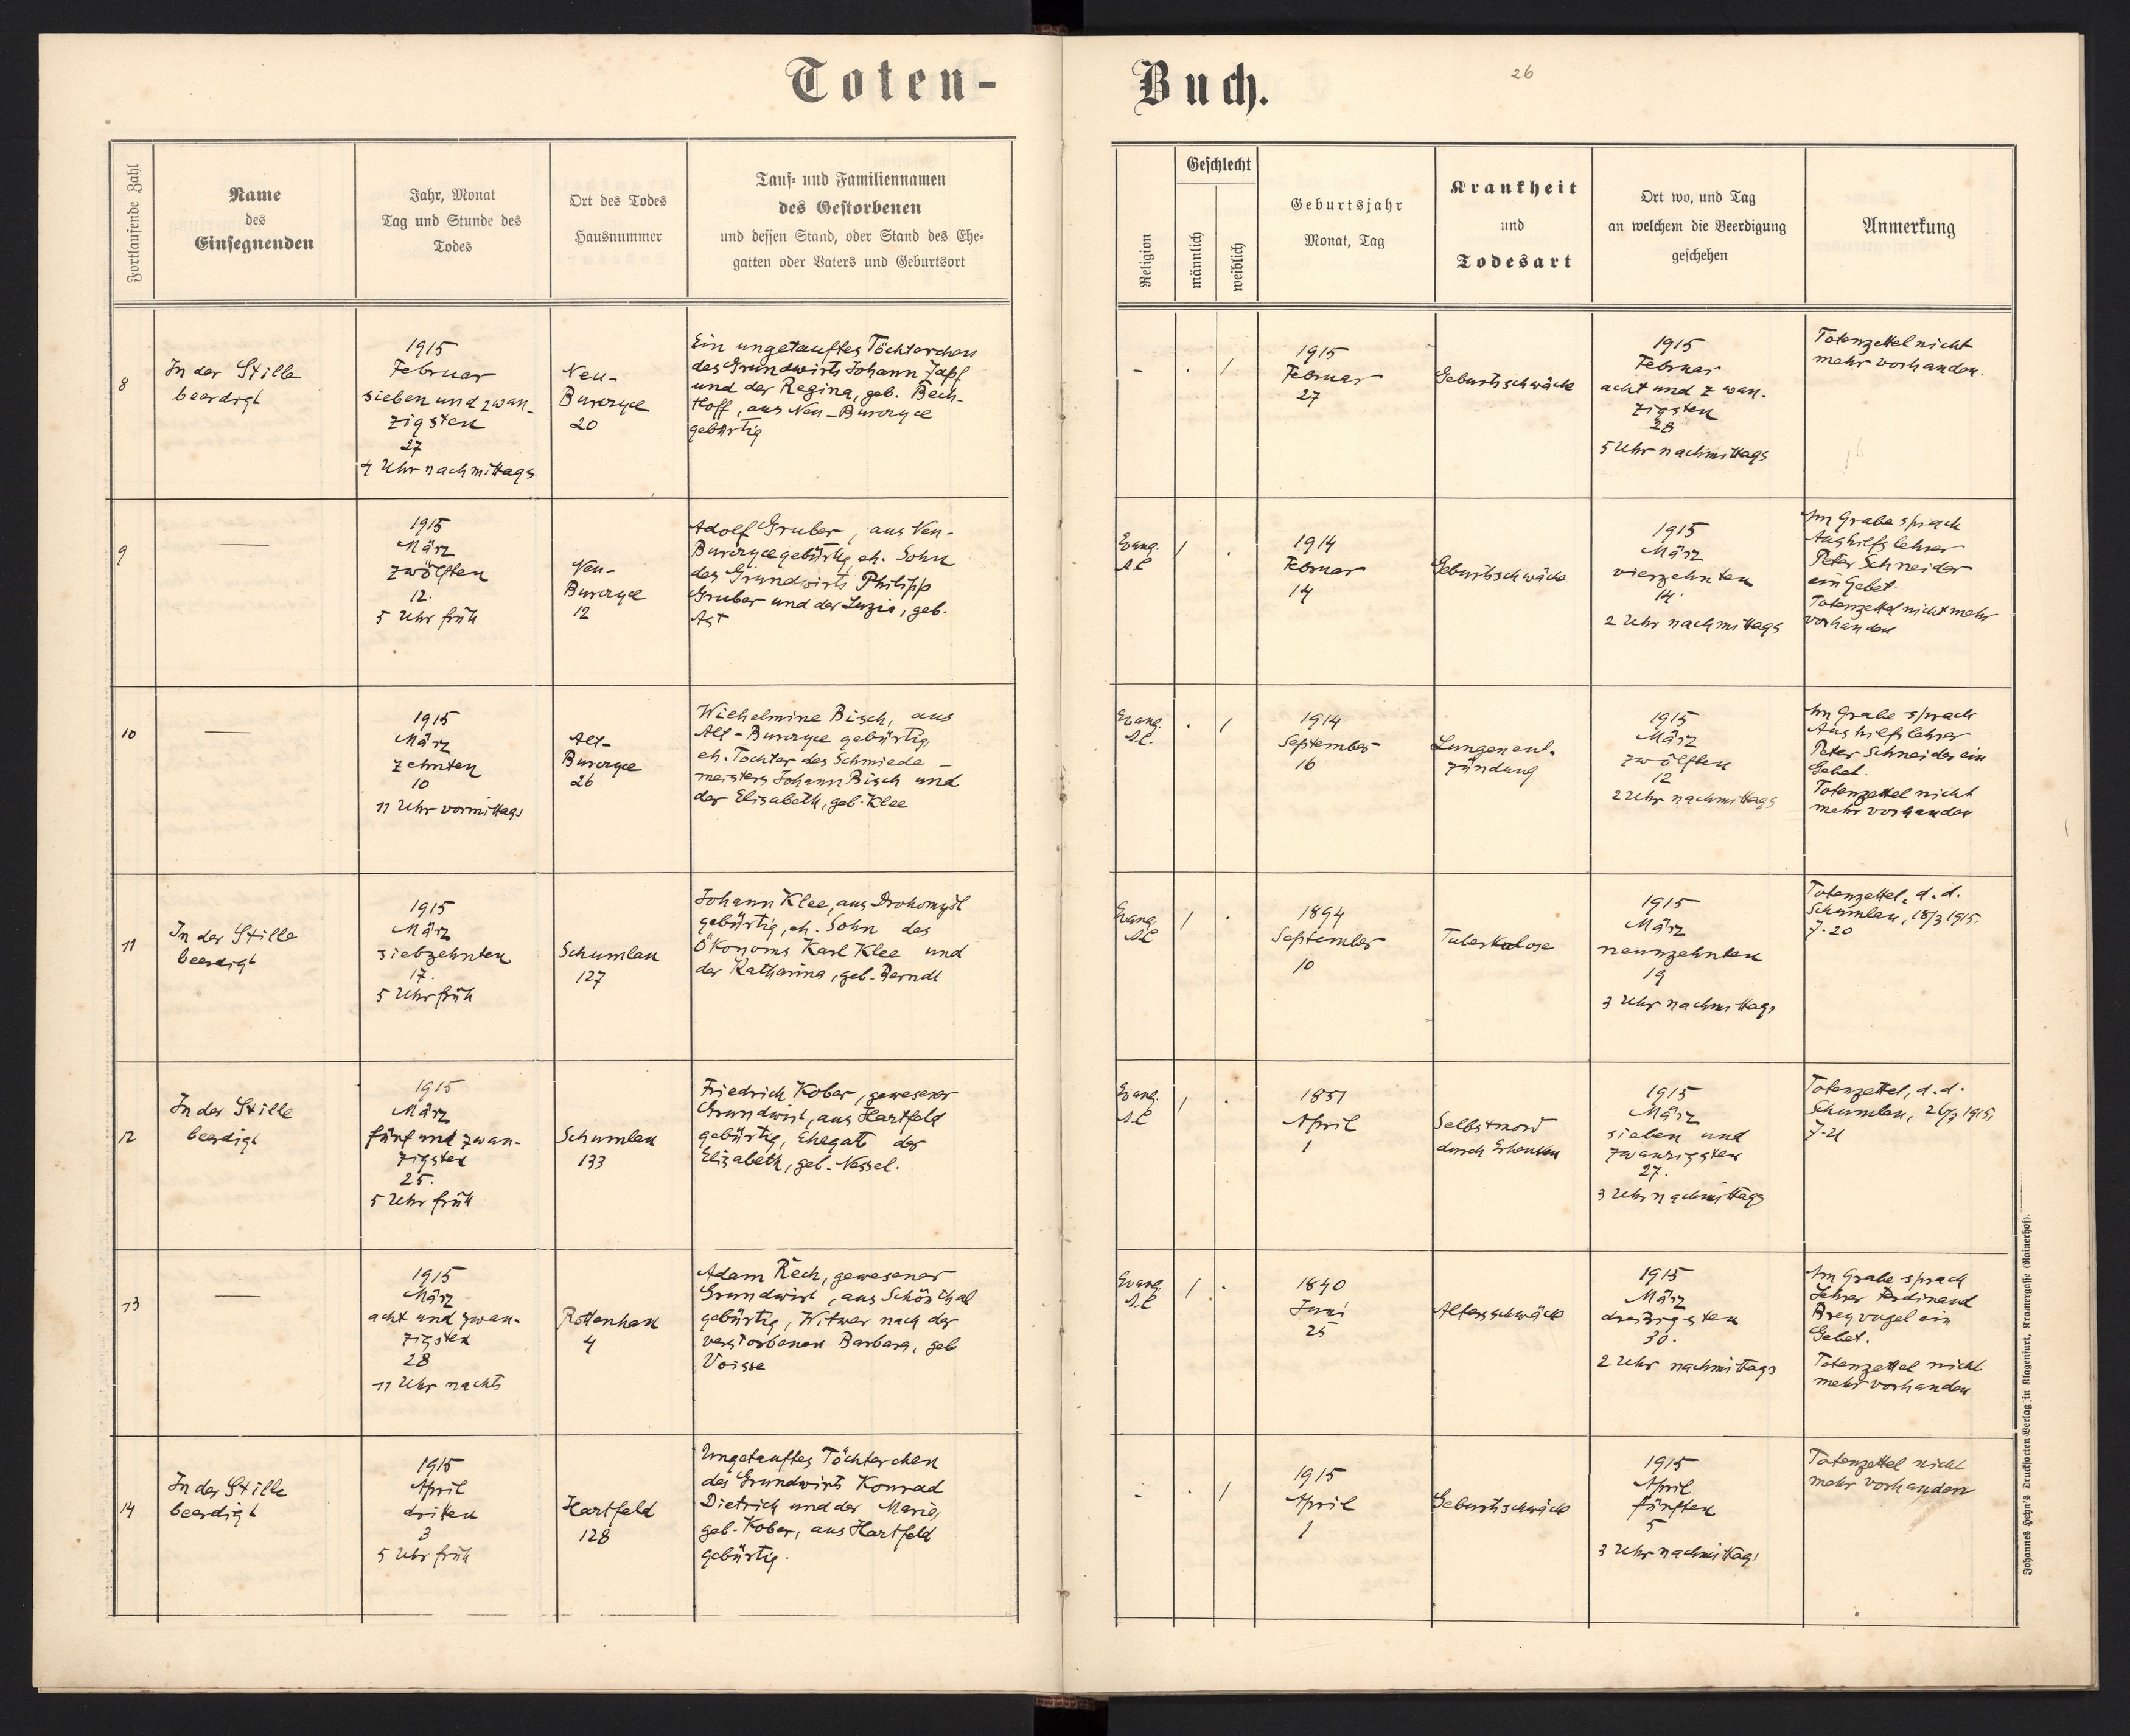 Toten-
Buch.
26
Fortlaufende Zahl
Name
des
Einsegnenden
Jahr, Monat
Tag und Stunde des
Todes
Ort des Todes
Hausnummer
Tauf- und Familiennamen
des Gestorbenen
und dessen Stand, oder Stand des Ehe-
gatten oder Vaters und Geburtsort
Religion
Geschlecht
männlich
weiblich
Geburtsjahr
Monat, Tag
Krankheit
und
Todesart
Ort wo, und Tag
an welchem die Beerdigung
geschehen
Anmerkung
8
In der Stille
beerdigt
1915
Februar
sieben und zwan-
zigsten
27
4 Uhr nachmittags
Neu-
Burczyce
20
Ein ungetauftes Töchterchen
des Grundwirts Johann Zapf
und der Regina, geb. Bech-
tloff, aus Neu-Burczyce
gebürtig
-
. /
1915
Februar
27
Geburtsschwäche
1915
Februar
acht und zwan-
zigsten
28
5 Uhr nachmittags
Totenzettel nicht
mehr vorhanden.
9
—
1915
März
zwölften
12.
5 Uhr früh
Neu-
Burczyce
12
Adolf Gruber, aus Neu-
Burczyce gebürtig, eh. Sohn
des Grundwirts Philipp
Gruber und der Luzia, geb.
Ast
Evang.
A.C.
/ .
1914
Februar
14
Geburtsschwäche
1915
März
vierzehnten
14.
2 Uhr nachmittags
Am Grabe sprach
Aushilfslehrer
Peter Schneider
ein Gebet.
Totenzettel nicht mehr
vorhanden
10
—
1915
März
zehnten
10
11 Uhr vormittags
Alt-
Burczyce
26
Wilhelmine Bisch, aus
Alt-Burczyce gebürtig,
eh. Tochter des Schmiede-
meisters Johann Bisch und
der Elisabeth, geb. Klee
Evang.
A.C.
. /
1914
September
16
Lungenent-
zündung
1915
März
zwölften
12
2 Uhr nachmittags
Am Grabe sprach
Aushilfslehrer
Peter Schneider ein
Gebet.
Totenzettel nicht
mehr vorhanden
11
In der Stille
beerdigt
1915
März
siebzehnten
17.
5 Uhr früh
Schumlau
127
Johann Klee, aus Drohomysl
gebürtig, eh. Sohn des
Ökonoms Karl Klee und
der Katharina, geb. Berndt
Evang.
A.C.
/ .
1894
September
10
Tuberkulose
1915
März
neunzehnten
19
3 Uhr nachmittags
Totenzettel, d. d.
Schumlau, 18/3 1915,
Z. 20
12
In der Stille
beerdigt
1915
März
fünf und zwan-
zigsten
25.
5 Uhr früh
Schumlau
133
Friedrich Kober, gewesener
Grundwirt, aus Hartfeld
gebürtig, Ehegatte der
Elisabeth, geb. Nessel.
Evang.
A.C.
/ .
1851
April
1
Selbstmord
durch Erhenken
1915
März
sieben und
zwanzigsten
27.
3 Uhr nachmittags
Totenzettel, d. d.
Schumlau, 26/3 1915,
Z. 21
13
—
1915
März
acht und zwan-
zigsten
28
11 Uhr nachts
Rottenhan
4
Adam Rech, gewesener
Grundwirt, aus Schönthal
gebürtig, Witwer nach der
verstorbenen Barbara, geb
Voisse
Evang.
A.C.
/ .
1840
Juni
25
Altersschwäche
1915
März
dreißigsten
30.
2 Uhr nachmittags
Am Grabe sprach
Lehrer Ferdinand
ein
Gebet.
Totenzettel nicht
mehr vorhanden
14
In der Stille
beerdigt
1915
April
dritten
3
5 Uhr früh
Hartfeld
128
Ungetauftes Töchterchen
des Grundwirts Konrad
Dietrich und der Maria,
geb. Kober, aus Hartfeld
gebürtig.
-
. /
1915
April
1
Geburtsschwäche
1915
April
fünften
5
3 Uhr nachmittags
Totenzettel nicht
mehr vorhanden
Johannes Heyn's Drucksorten Verlag in Klagenfurt, Kramergasse (Rainerhof).